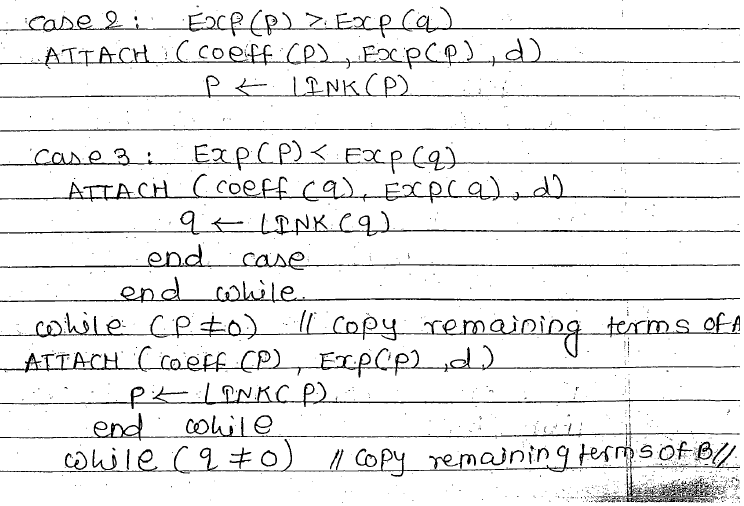 case 2 : Exp(p) > Exp(q)
ATTACH (coeff (P), Exp(p), d)
P ← LINK(P)
case 3 : Exp(P) < Exp(q)
ATTACH (coeff (q), Exp(q), d)
q ← LINK (q)
end case
end while.
while (P ≠ 0) // copy remaining terms of A
ATTACH (coeff (P), Exp(P), d)
P ← LINK( P)
end while
while (q ≠ 0) // copy remaining terms of B//